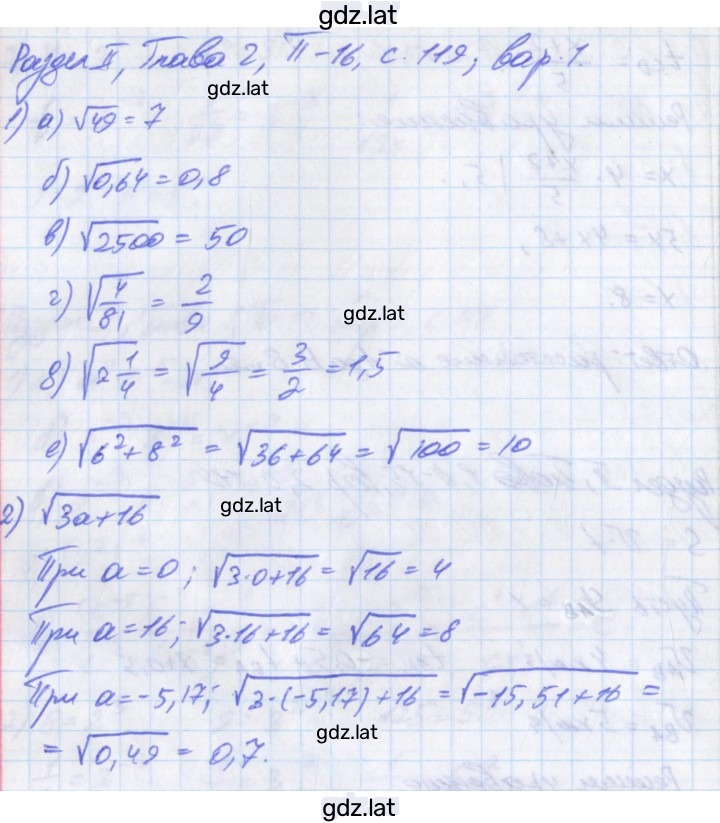 gdz.lat
Раздел II, Глава 2, П-16, с. 119, вар. 1.
gdz.lat
1) а) √49 = 7
б) √0,64 = 0,8
в) √2500 = 50
г) √4/81 = 2/9
gdz.lat
д) √2 1/4 = √9/4 = 3/2 = 1,5
е) √6² + 8² = √36+64 = √100 = 10
gdz.lat
2) √3a+16
При a=0; √3·0+16 = √16 = 4
При a=16; √3·16+16 = √64 = 8
При a=-5,17; √3·(-5,17)+16 = √-15,51+16 =
= √0,49 = 0,7.
gdz.lat
gdz.lat